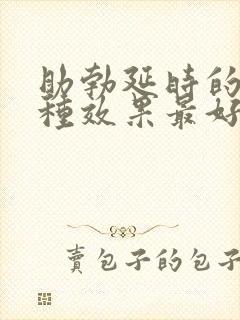 助勃延時的
種效果最好
賣包子的包子